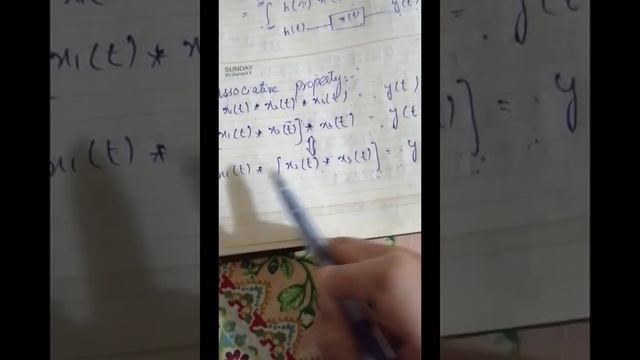 = ∫ h(τ)
h(t) x(t) y(t)
SUNDAY
Associative property:-
x₁(t) * x₂(t) * x₃(t) = y(t)
x₁(t) * x₂(t)] * x₃(t) = y(t
⇕
x₁(t) * [x₂(t) * x₃(t)] = y